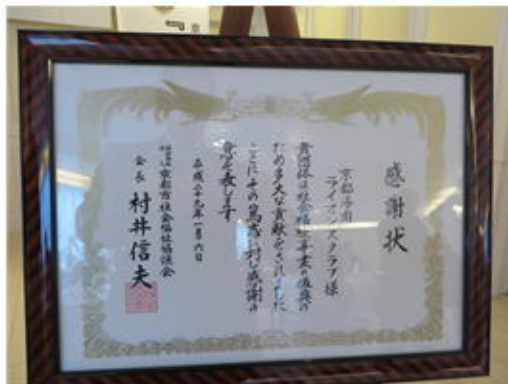 感謝状
京都洛南
ライオンズクラブ様
貴団体は社会福祉事業の推進の
ため多大な貢献をされました
ことにその篤志に対し感謝の
意を表します
平成二十九年一月六日
社会福祉法人 京都市社会福祉協議会
会長 村井信夫